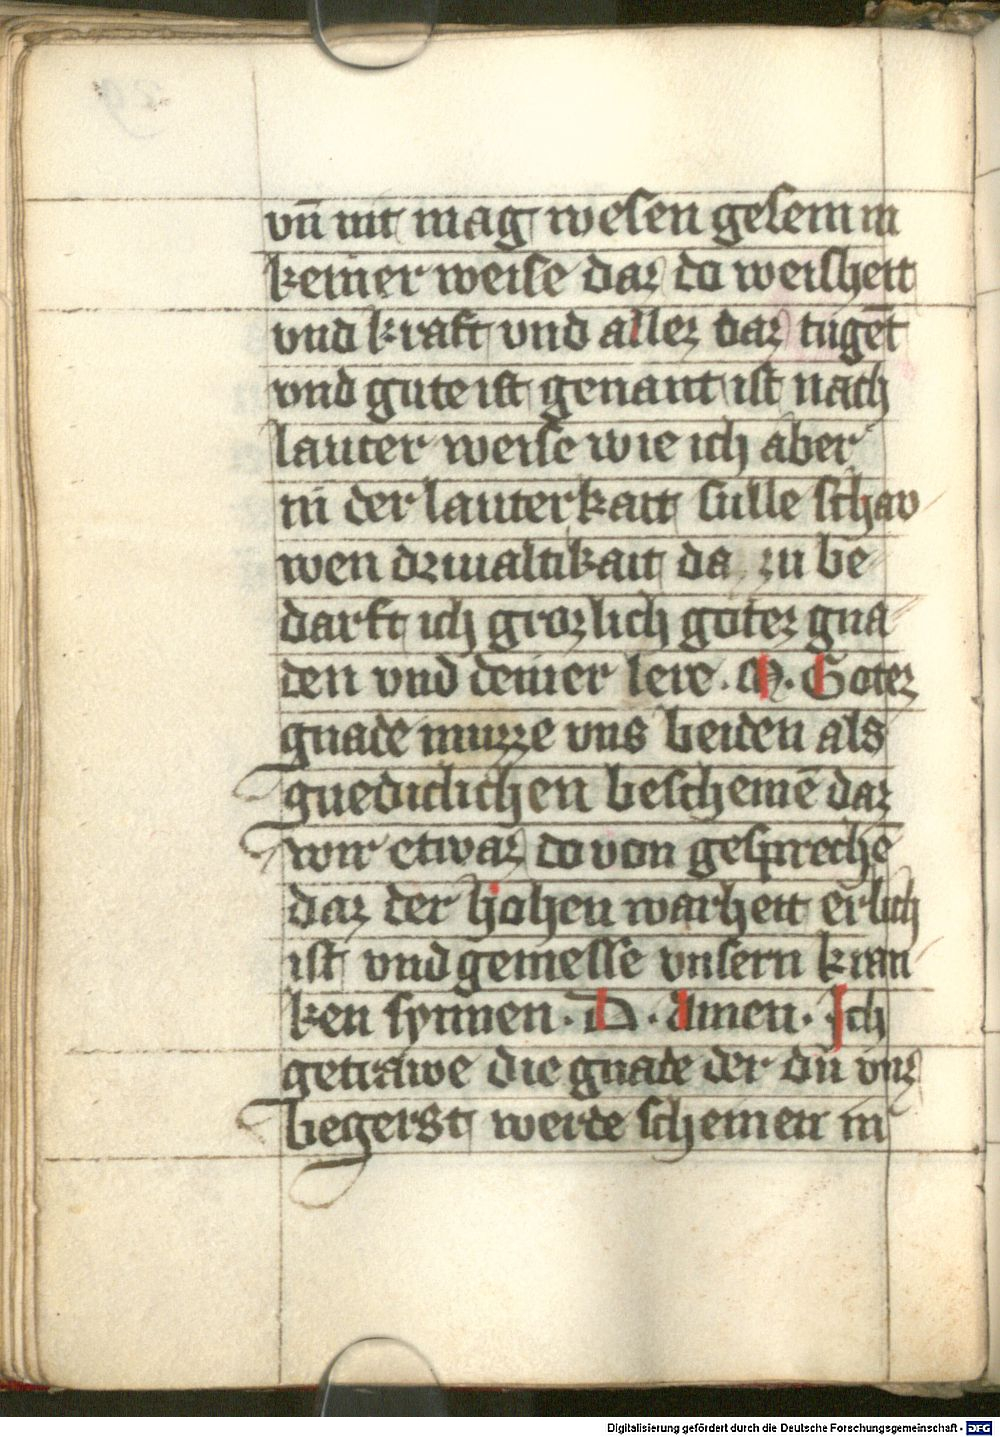 vn̄ nit mag wesen gesein in
keiner weise daz do weisheit
vnd kraft vnd allez daz tugēt
vnd gute ist genant ist nach
lauter weise wie ich aber
in der lauterkait sulle schav
wen drivaltikait da zu be
darft ich grozlich gotez gna
den vnd deiner lere . M . Gotez
gnade muzze vns beiden als
gnediclichen bescheinē daz
wir etwaz do von gesprechē
daz der hohen warheit erlich
ist vnd gemesse vnsern kran
ken synnen . D . Amen . Ich
getrawe die gnade der du vnz
begerst werde scheinen in
Digitalisierung gefördert durch die Deutsche Forschungsgemeinschaft - DFG